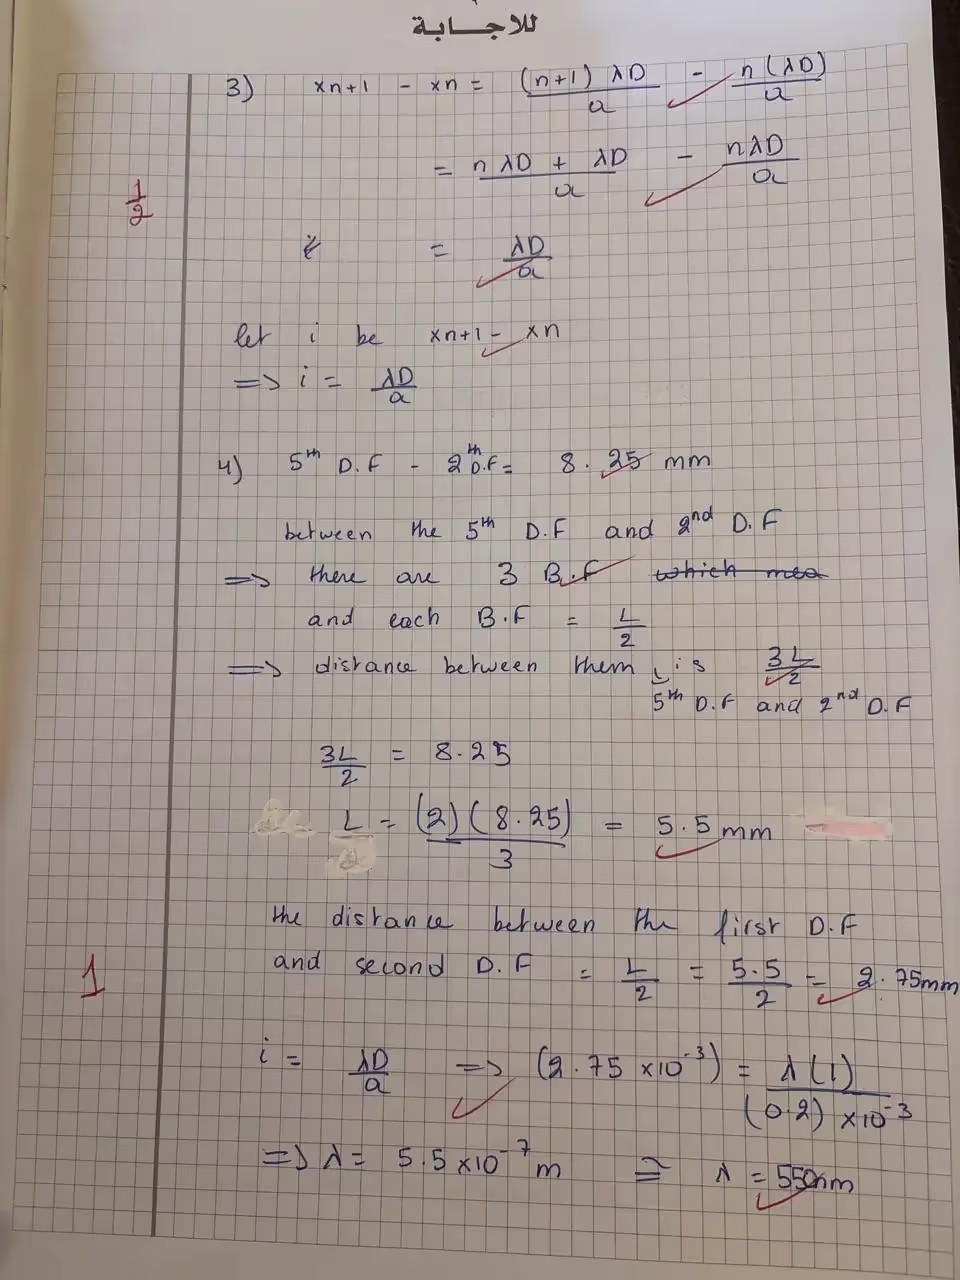 للاجـــابـة
3) xn+1 - xn = (n+1) λD / a - n (λD) / a
= n λD + λD / a - nλD / a
1/2
i = λD / a
let i be xn+1 - xn
=> i = λD / a
4) 5th D.F - 2th D.F = 8.25 mm
between the 5th D.F and 2nd D.F
=> there are 3 B.F which mea
and each B.F = L/2
=> distance between them is 3L/2
5th D.F and 2nd D.F
3L/2 = 8.25
L = (2)(8.25) / 3 = 5.5 mm
the distance between the first D.F
and second D.F = L/2 = 5.5/2 = 2.75mm
1
i = λD / a => (2.75 x10^-3) = λ(1) / (0.2) x10^-3
=> λ = 5.5 x10^-7 m => λ = 550nm